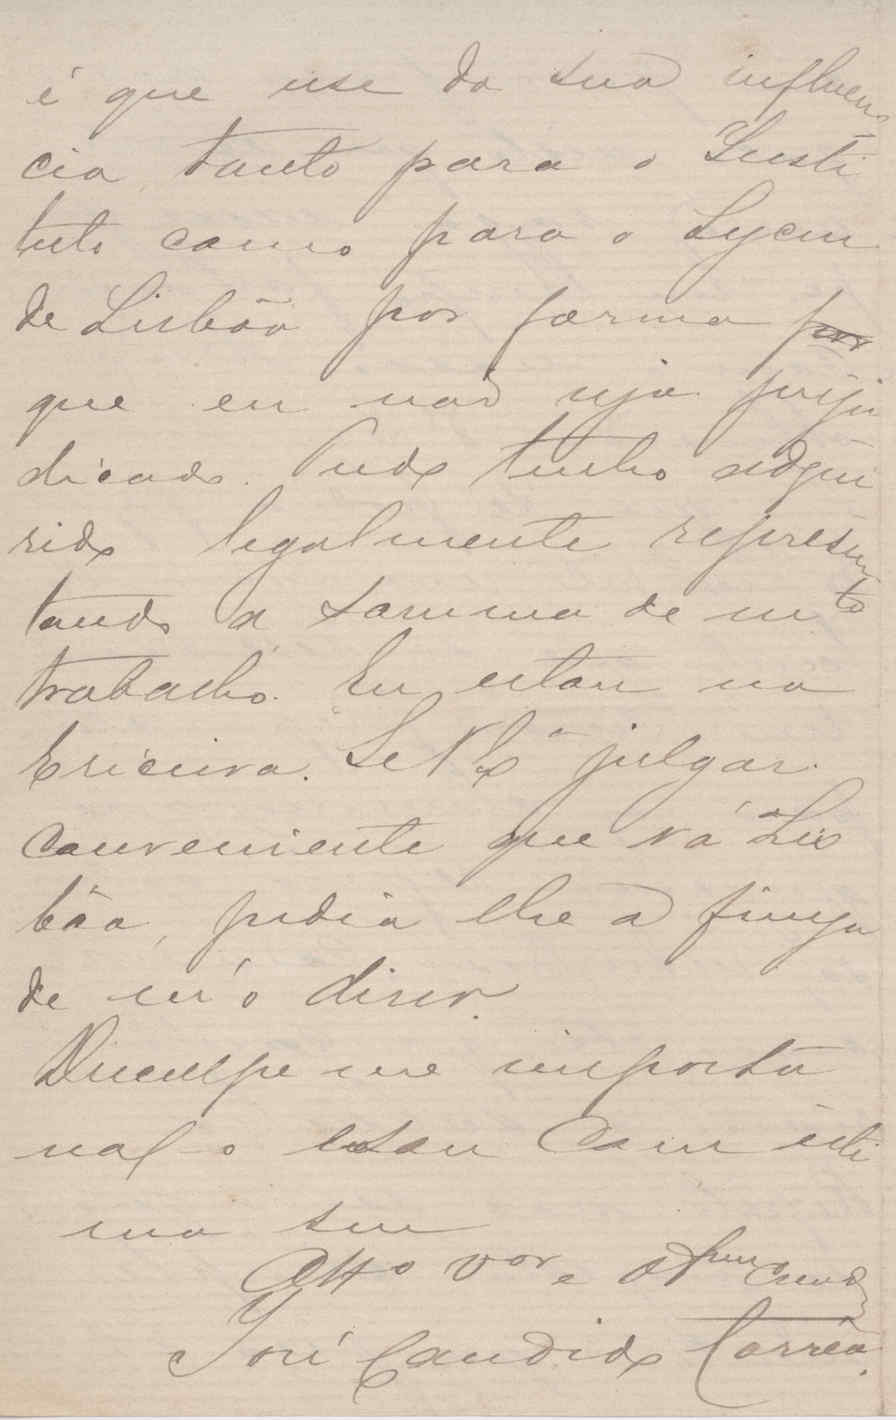 é que use da sua influen
cia, tanto para o Insti
tuto como para o Lyceu
de Lisbôa por forma por
que eu não seja preju
dicado. Tudo tenho adqui
rido legalmente represen
tando a somma de mto
trabalho. Eu estou na
Ericeira. Se V Exa julgar
conveniente que vá Lis
bôa, pedia lhe a fineza
de m'o dizer.
Desculpe me importu
nal o e sou com esti
ma seu
Atto vor e
José Candido Corrêa.